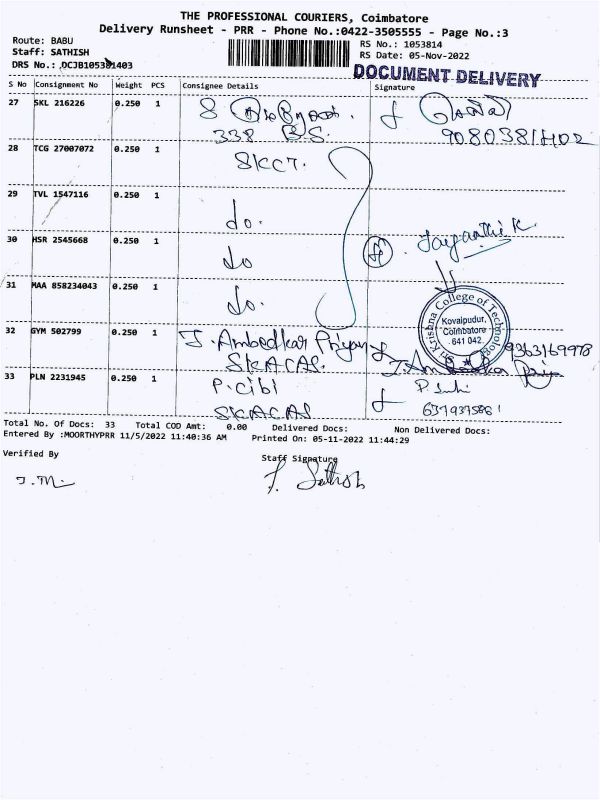 THE PROFESSIONAL COURIERS, Coimbatore
Delivery Runsheet - PRR - Phone No.:0422-3505555 - Page No.:3
Route: BABU
RS No.: 1053814
Staff: SATHISH
RS Date: 05-Nov-2022
DRS No.: DCJB105381403
DOCUMENT DELIVERY
S No Consignment No Weight PCS Consignee Details Signature
27 SKL 216226 0.250 1 8
338 B.S. 9080381402
28 TCG 27007072 0.250 1 SKCT.
29 TVL 1547116 0.250 1 do.
30 HSR 2545668 0.250 1 do Jayanthi K
31 MAA 858234043 0.250 1 do.
Sri Krishna College of Technology
Kovaipudur,
Coimbatore
641 042.
32 GYM 502799 0.250 1 J. Ambedkar Priyan 9363169978
SKACAS.
33 PLN 2231945 0.250 1 P. Cibi
SKACAS
Total No. Of Docs: 33 Total COD Amt: 0.00 Delivered Docs: Non Delivered Docs:
Entered By :MOORTHYPRR 11/5/2022 11:40:36 AM Printed On: 05-11-2022 11:44:29
Verified By Staff Signature
J. Sathish